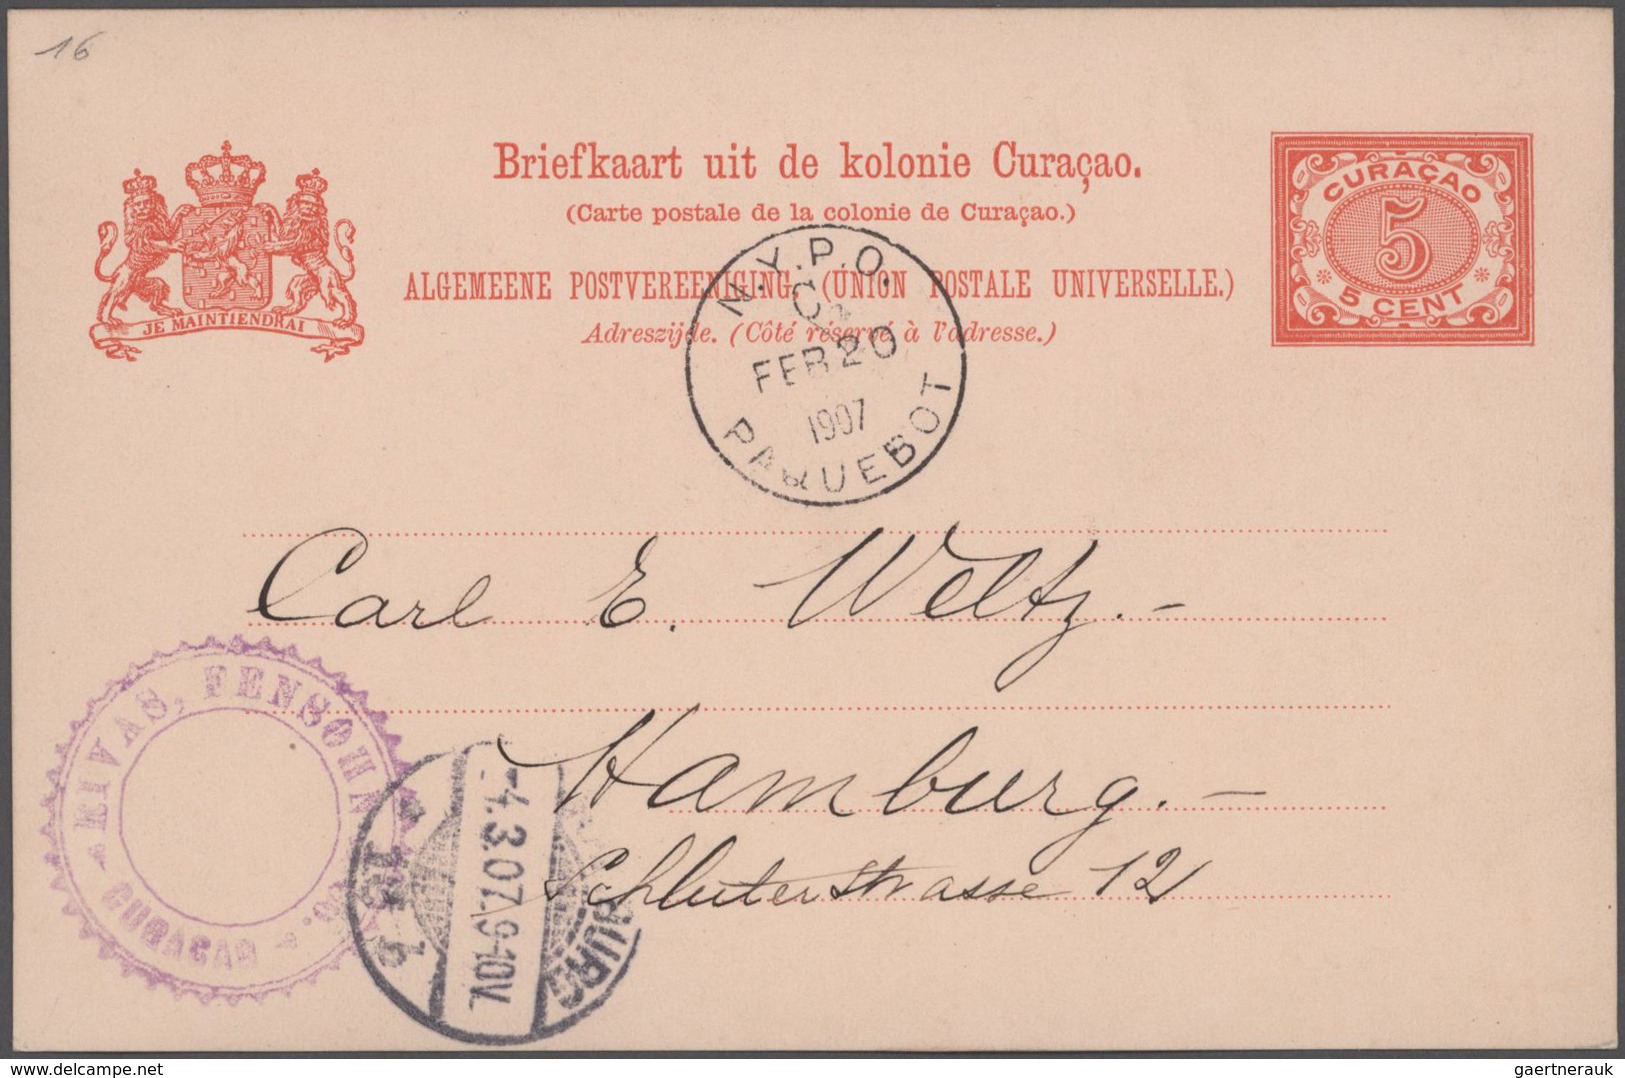 16
Briefkaart uit de kolonie Curaçao.
(Carte postale de la colonie de Curaçao.)
ALGEMEENE POSTVEREENIGING (UNION POSTALE UNIVERSELLE.)
Adreszijde. (Côté réservé à l'adresse.)
JE MAINTIENDRAI
CURAÇAO
5
5 CENT
N.Y.P.O.
FEB 20
1907
PAQUEBOT
Carl E. Weltz.-
Hamburg.-
Schluterstrasse 12
RIVAS, FENSOHN
CURAÇAO
-4.3.07.9-10V.
BURG
delcampe.net
gaertnerauk